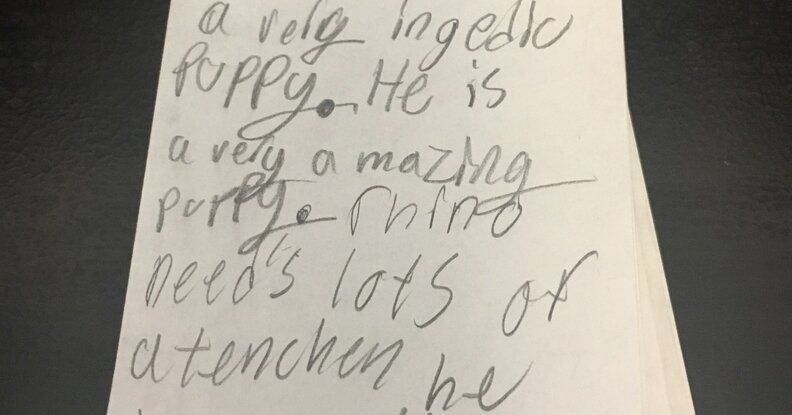 a very ingedic
puppy. He is
a very amazing
puppy. rhino
need's lots of
atenchen he